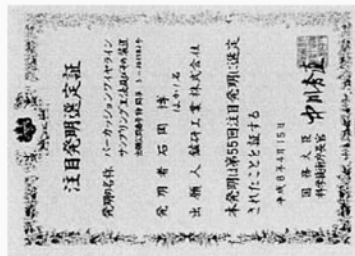 注目発明選定証
発明の名称 パーカッションワイヤライン
サンプリング工法及びその装置
発明者 石岡 博
ほか1名
出願人 鉱研工業株式会社
本発明は第55回注目発明に選定
されたことを証する
平成8年4月15日
国務大臣
科学技術庁長官 中川秀直